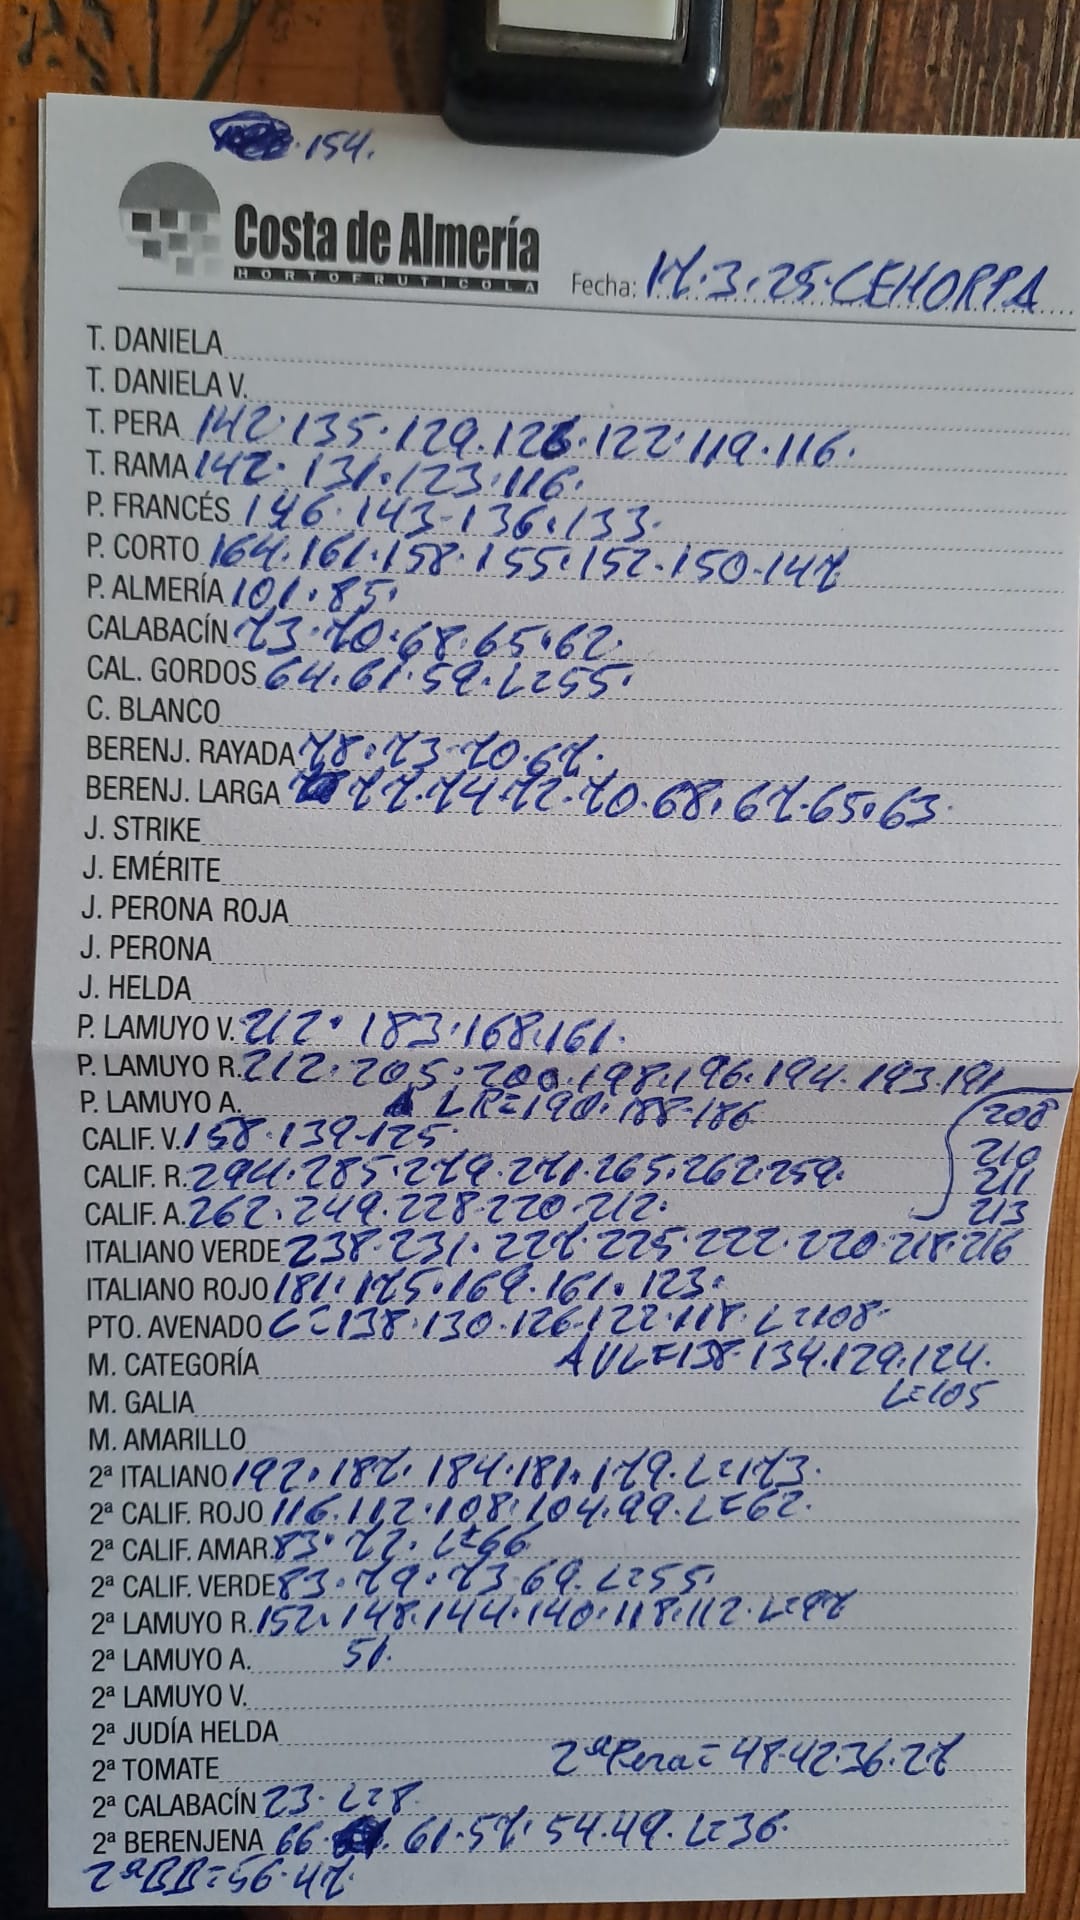 154.
Costa de Almería
HORTOFRUTICOLA
Fecha: 17.3.25.CEHORPA
T. DANIELA
T. DANIELA V.
T. PERA 142.135.129.126.122.119.116.
T. RAMA 142.131.123.116.
P. FRANCÉS 146.143-136.133.
P. CORTO 164.161.158.155.152.150.147
P. ALMERÍA 101.85.
CALABACÍN 73.70.68.65.62.
CAL. GORDOS 64.61.59.L=55.
C. BLANCO
BERENJ. RAYADA 78.73-70.67.
BERENJ. LARGA 77.74.72.70.68.67.65.63.
J. STRIKE
J. EMÉRITE
J. PERONA ROJA
J. PERONA
J. HELDA
P. LAMUYO V. 212.183.168.161.
P. LAMUYO R. 212.205.200.198.196.194.193.191
P. LAMUYO A. LR=190.188-186 208
CALIF. V. 158.139-125. 210
CALIF. R. 294.285.279.271.265.262.259. 211
CALIF. A. 262.249.228-220-212. 213
ITALIANO VERDE 238.231.227.225.222.220.218.216
ITALIANO ROJO 181.175.169.161.123.
PTO. AVENADO C=138.130.126-122.118.L=108-
M. CATEGORÍA AVL=138-134.129.124.
M. GALIA L=105
M. AMARILLO
2ª ITALIANO 192.187.184.181.179.L=173.
2ª CALIF. ROJO 116.112.108.104.99.L=62.
2ª CALIF. AMAR. 83.72.L=66
2ª CALIF. VERDE 83.79.73.69.L=55.
2ª LAMUYO R. 152.148.144.140.118.112.L=97
2ª LAMUYO A. 51.
2ª LAMUYO V.
2ª JUDÍA HELDA
2ª TOMATE 2ªPera=48.42.36.27
2ª CALABACÍN 23.L=8
2ª BERENJENA 66. 61.57.54.49.L=36.
2ªBB=56.47.